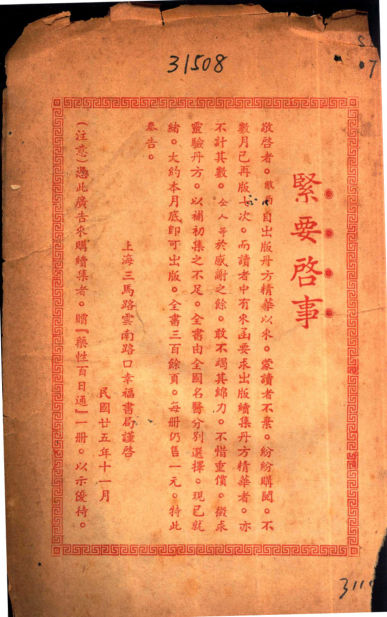 31508
緊要啓事
敬啓者。敝局自出版丹方精華以來。蒙讀者不棄。紛紛購閱。不
數月已再版七次。而讀者中有來函要求出版續集丹方精華者。亦
不計其數。仝人等於感謝之餘。敢不竭其綿力。不惜重價。徵求
靈驗丹方。以補初集之不足。全書由全國名醫分別選擇。現已就
緒。大約本月底卽可出版。全書三百餘頁。每册仍售一元。特此
奉告。
上海三馬路雲南路口幸福書局謹啓
民國廿五年十一月
(注意)憑此廣告來購續集者。贈『藥性百日通』一册。以示優待。